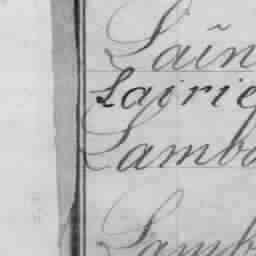 Laîn
Lairie
Lamba
Lamb